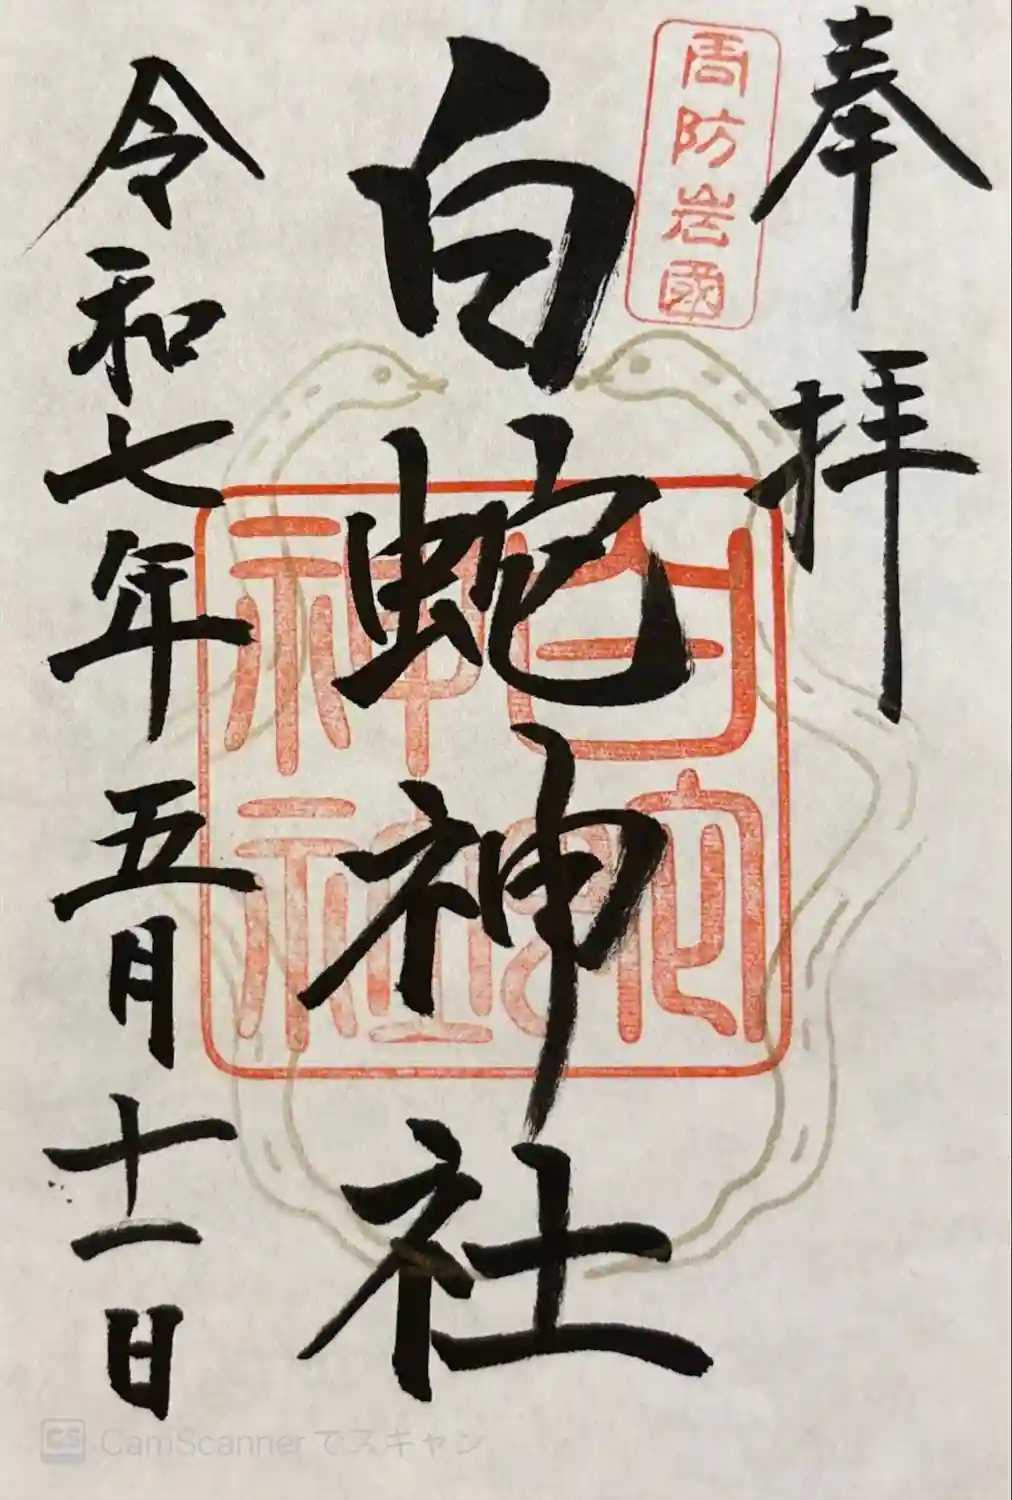 奉拝
周防岩國
白蛇神社
白蛇
神社
令和七年五月十一日
CamScannerでスキャン